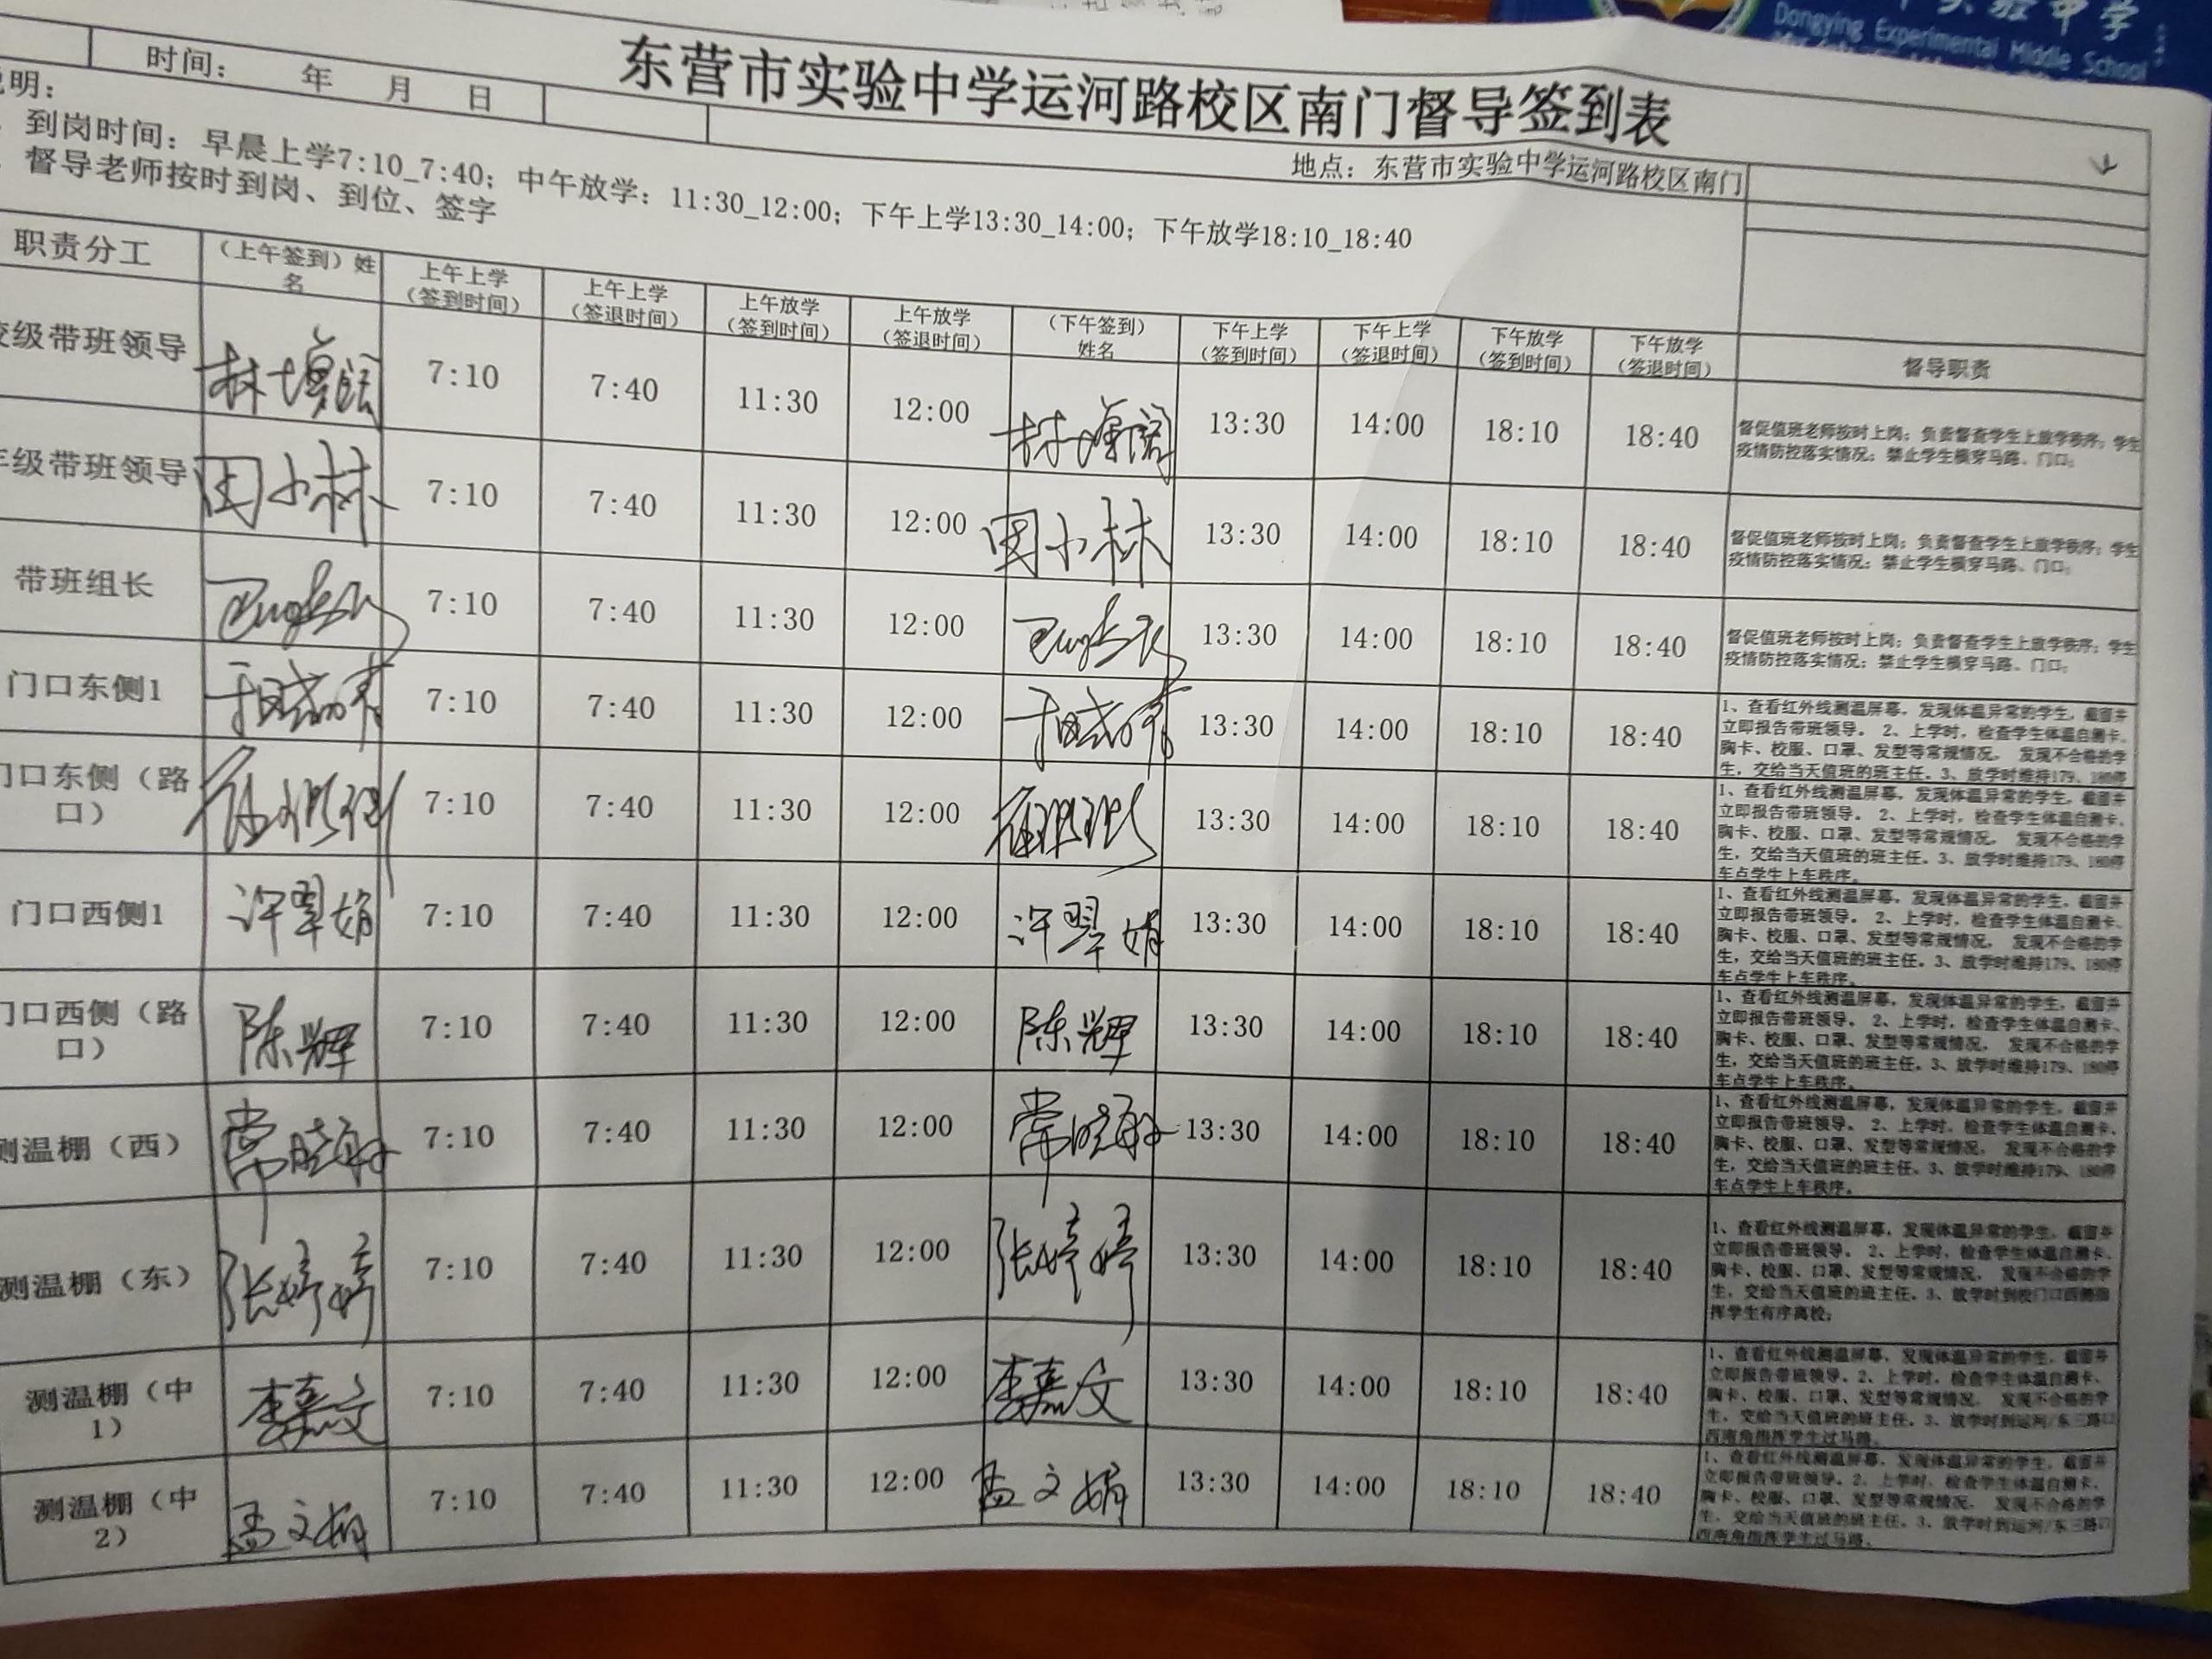 实验中学
Dongying Experimental Middle School
东营市实验中学运河路校区南门督导签到表
时间： 年 月 日
地点：东营市实验中学运河路校区南门
明：
到岗时间：早晨上学7:10_7:40；中午放学：11:30_12:00；下午上学13:30_14:00；下午放学18:10_18:40
督导老师按时到岗、到位、签字
职责分工 （上午签到）姓名 上午上学（签到时间） 上午上学（签退时间） 上午放学（签到时间） 上午放学（签退时间） （下午签到）姓名 下午上学（签到时间） 下午上学（签退时间） 下午放学（签到时间） 下午放学（签退时间） 督导职责
级带班领导 7:10 7:40 11:30 12:00 13:30 14:00 18:10 18:40
督促值班老师按时上岗；负责督查学生上放学秩序；学生
疫情防控落实情况；禁止学生横穿马路、门口；
级带班领导 周小林 7:10 7:40 11:30 12:00 周小林 13:30 14:00 18:10 18:40
督促值班老师按时上岗；负责督查学生上放学秩序；学生
疫情防控落实情况；禁止学生横穿马路、门口；
带班组长 7:10 7:40 11:30 12:00 13:30 14:00 18:10 18:40
督促值班老师按时上岗；负责督查学生上放学秩序；学生
疫情防控落实情况；禁止学生横穿马路、门口；
门口东侧1 7:10 7:40 11:30 12:00 13:30 14:00 18:10 18:40
1、查看红外线测温屏幕，发现体温异常的学生，截留并
立即报告带班领导。 2、上学时，检查学生体温自测卡、
胸卡、校服、口罩、发型等常规情况， 发现不合格的学
生，交给当天值班的班主任。3、放学时维持179、180停
门口东侧（路口） 7:10 7:40 11:30 12:00 13:30 14:00 18:10 18:40
1、查看红外线测温屏幕，发现体温异常的学生，截留并
立即报告带班领导。 2、上学时，检查学生体温自测卡、
胸卡、校服、口罩、发型等常规情况， 发现不合格的学
生，交给当天值班的班主任。3、放学时维持179、180停
车点学生上车秩序。
门口西侧1 许翠娟 7:10 7:40 11:30 12:00 许翠娟 13:30 14:00 18:10 18:40
1、查看红外线测温屏幕，发现体温异常的学生，截留并
立即报告带班领导。 2、上学时，检查学生体温自测卡、
胸卡、校服、口罩、发型等常规情况， 发现不合格的学
生，交给当天值班的班主任。3、放学时维持179、180停
车点学生上车秩序。
门口西侧（路口） 陈辉 7:10 7:40 11:30 12:00 陈辉 13:30 14:00 18:10 18:40
1、查看红外线测温屏幕，发现体温异常的学生，截留并
立即报告带班领导。 2、上学时，检查学生体温自测卡、
胸卡、校服、口罩、发型等常规情况， 发现不合格的学
生，交给当天值班的班主任。3、放学时维持179、180停
车点学生上车秩序。
测温棚（西） 7:10 7:40 11:30 12:00 13:30 14:00 18:10 18:40
1、查看红外线测温屏幕，发现体温异常的学生，截留并
立即报告带班领导。 2、上学时，检查学生体温自测卡、
胸卡、校服、口罩、发型等常规情况， 发现不合格的学
生，交给当天值班的班主任。3、放学时维持179、180停
车点学生上车秩序。
测温棚（东） 张婷婷 7:10 7:40 11:30 12:00 张婷婷 13:30 14:00 18:10 18:40
1、查看红外线测温屏幕，发现体温异常的学生，截留并
立即报告带班领导。 2、上学时，检查学生体温自测卡、
胸卡、校服、口罩、发型等常规情况， 发现不合格的学
生，交给当天值班的班主任。3、放学时到校门口西侧指
挥学生有序离校；
测温棚（中1） 李嘉文 7:10 7:40 11:30 12:00 李嘉文 13:30 14:00 18:10 18:40
1、查看红外线测温屏幕，发现体温异常的学生，截留并
立即报告带班领导。2、上学时，检查学生体温自测卡、
胸卡、校服、口罩、发型等常规情况， 发现不合格的学
生，交给当天值班的班主任。3、放学时到运河/东三路口
西南角指挥学生过马路。
测温棚（中2） 孟文娟 7:10 7:40 11:30 12:00 孟文娟 13:30 14:00 18:10 18:40
1、查看红外线测温屏幕，发现体温异常的学生，截留并
立即报告带班领导。2、上学时，检查学生体温自测卡、
胸卡、校服、口罩、发型等常规情况， 发现不合格的学
生，交给当天值班的班主任。3、放学时到运河/东三路口
西南角指挥学生过马路。